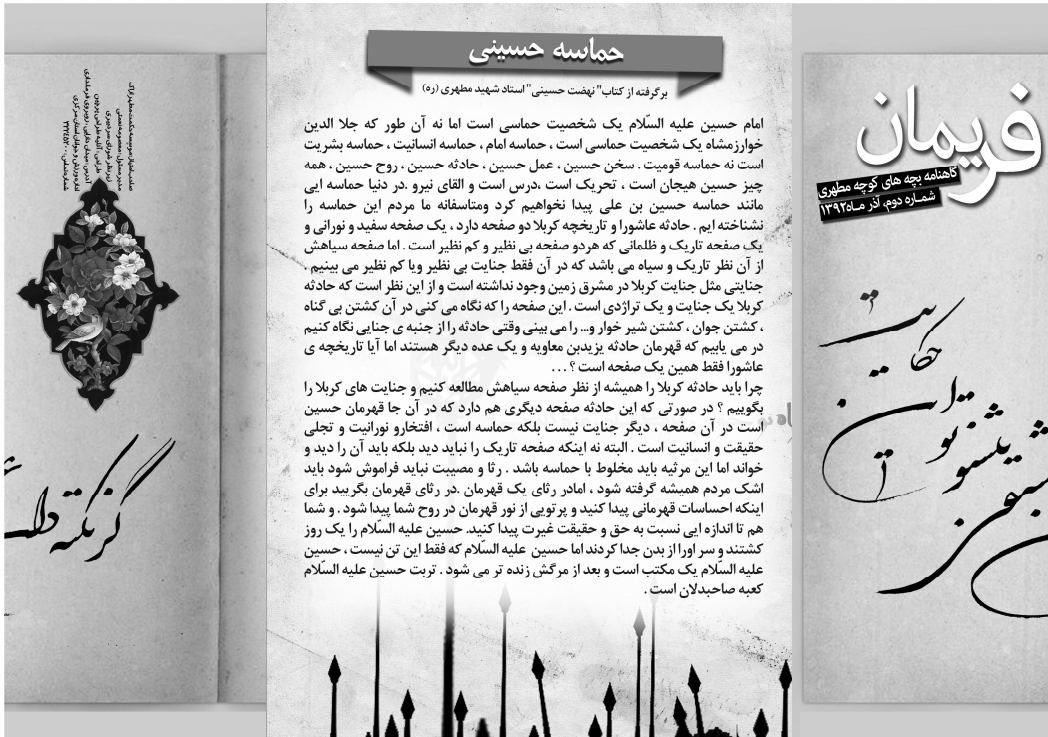 فریمان
گاهنامه بچه های کوچه مطهری
شماره دوم، آذر ماه۱۳۹۲
حکایت
از
این
بشنو تو
حماسه حسینی
برگرفته از کتاب" نهضت حسینی" استاد شهید مطهری (ره)
امام حسین علیه السّلام یک شخصیت حماسی است اما نه آن طور که جلا الدین
خوارزمشاه یک شخصیت حماسی است ، حماسه امام ، حماسه انسانیت ، حماسه بشریت
است نه حماسه قومیت . سخن حسین ، عمل حسین ، حادثه حسین ، روح حسین ، همه
چیز حسین هیجان است ، تحریک است ،درس است و القای نیرو .در دنیا حماسه ایی
مانند حماسه حسین بن علی پیدا نخواهیم کرد ومتاسفانه ما مردم این حماسه را
نشناخته ایم . حادثه عاشورا و تاریخچه کربلا دو صفحه دارد ، یک صفحه سفید و نورانی و
یک صفحه تاریک و ظلمانی که هردو صفحه بی نظیر و کم نظیر است . اما صفحه سیاهش
از آن نظر تاریک و سیاه می باشد که در آن فقط جنایت بی نظیر ویا کم نظیر می بینیم .
جنایتی مثل جنایت کربلا در مشرق زمین وجود نداشته است و از این نظر است که حادثه
کربلا یک جنایت و یک تراژدی است . این صفحه را که نگاه می کنی در آن کشتن بی گناه
، کشتن جوان ، کشتن شیر خوار و... را می بینی وقتی حادثه را از جنبه ی جنایی نگاه کنیم
در می یابیم که قهرمان حادثه یزیدبن معاویه و یک عده دیگر هستند اما آیا تاریخچه ی
عاشورا فقط همین یک صفحه است ؟ ...
چرا باید حادثه کربلا را همیشه از نظر صفحه سیاهش مطالعه کنیم و جنایت های کربلا را
بگوییم ؟ در صورتی که این حادثه صفحه دیگری هم دارد که در آن جا قهرمان حسین
است در آن صفحه ، دیگر جنایت نیست بلکه حماسه است ، افتخارو نورانیت و تجلی
حقیقت و انسانیت است . البته نه اینکه صفحه تاریک را نباید دید بلکه باید آن را دید و
خواند اما این مرثیه باید مخلوط با حماسه باشد . رثا و مصیبت نباید فراموش شود باید
اشک مردم همیشه گرفته شود ، امادر رثای یک قهرمان .در رثای قهرمان بگریید برای
اینکه احساسات قهرمانی پیدا کنید و پرتویی از نور قهرمان در روح شما پیدا شود . و شما
هم تا اندازه ایی نسبت به حق و حقیقت غیرت پیدا کنید. حسین علیه السّلام را یک روز
کشتند و سر اورا از بدن جدا کردند اما حسین علیه السّلام که فقط این تن نیست ، حسین
علیه السّلام یک مکتب است و بعد از مرگش زنده تر می شود . تربت حسین علیه السّلام
کعبه صاحبدلان است .
صاحب امتیاز: موسسه حکمت مطهر اراک
مدیر مسئول: معصومه نعمتی
زیر نظر شورای سردبیری
گر نکته دان